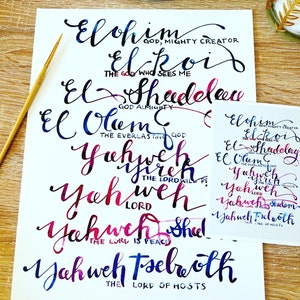 Elohim
GOD, MIGHTY CREATOR
El-Roi
THE GOD WHO SEES ME
El Shaddai
GOD ALMIGHTY
El Olam
THE EVERLASTING GOD
Yahweh
Yireh
THE LORD WILL P
Yahweh
LORD
Yahweh Shal
THE LORD IS PEACE
Yahweh Tselvoth
THE LORD OF HOSTS
Elohim
El-Roi
El Shaddai
El Olam
Yahweh
Yireh
Yahweh
LORD
Yahweh Shalom
Yahweh Tselvoth
LORD OF HOSTS